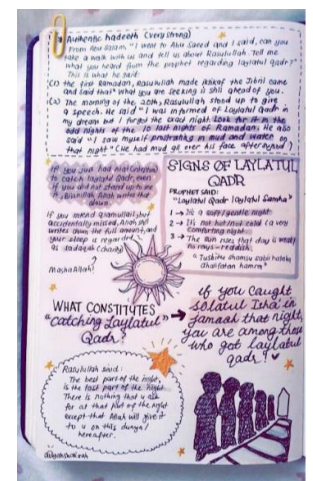 Authentic hadeeth (very strong)
From Abu Salama, "I went to Abu Saeed and I said, can you
take a walk with us and tell us about Rasulullah. Tell me
what you heard from the prophet regarding laylatul qadr?"
This is what he said:
(1) The first Ramadan, rasulullah made itikaf the Jibril came
and said that what you are seeking is still ahead of you.
(2) The morning of the 20th, Rasulullah stood up to give
a speech. He said "I was informed of Laylatul Qadr in
my dream but I forgot the exact night. Look for it in the
odd nights of the 10 last nights of Ramadan. He also
said "I saw myself prostrating in mud and water on
that night" (He had mud all over his face after
If you just had
to catch laylatul Qadr, even
if you did not
Allah
down.
If you intend qiamullail but
accidentally missed, Allah
writes down the full amount, and
your sleep is regarded
as sadaqah (charity)
MashaAllah!
SIGNS OF LAYLATUL
QADR
PROPHET SAID:
"Laylatul Qadr laylatul
1 → It's a soft/gentle night
2 → It's not hot nor cold (a very
comforting night)
3 → The sun rises that day is weak,
no rays - reddish.
WHAT CONSTITUTES
"catching Laylatul
Qadr?
→ if you caught
solatul Isha' in
jamaah that night,
you are among those
who got laylatul
qadr!
Rasulullah said:
The best part of the night,
is the last part of the night.
There is nothing that u ask
for at that part of the night
except that Allah will give it
to u on this dunya/
hereafter.